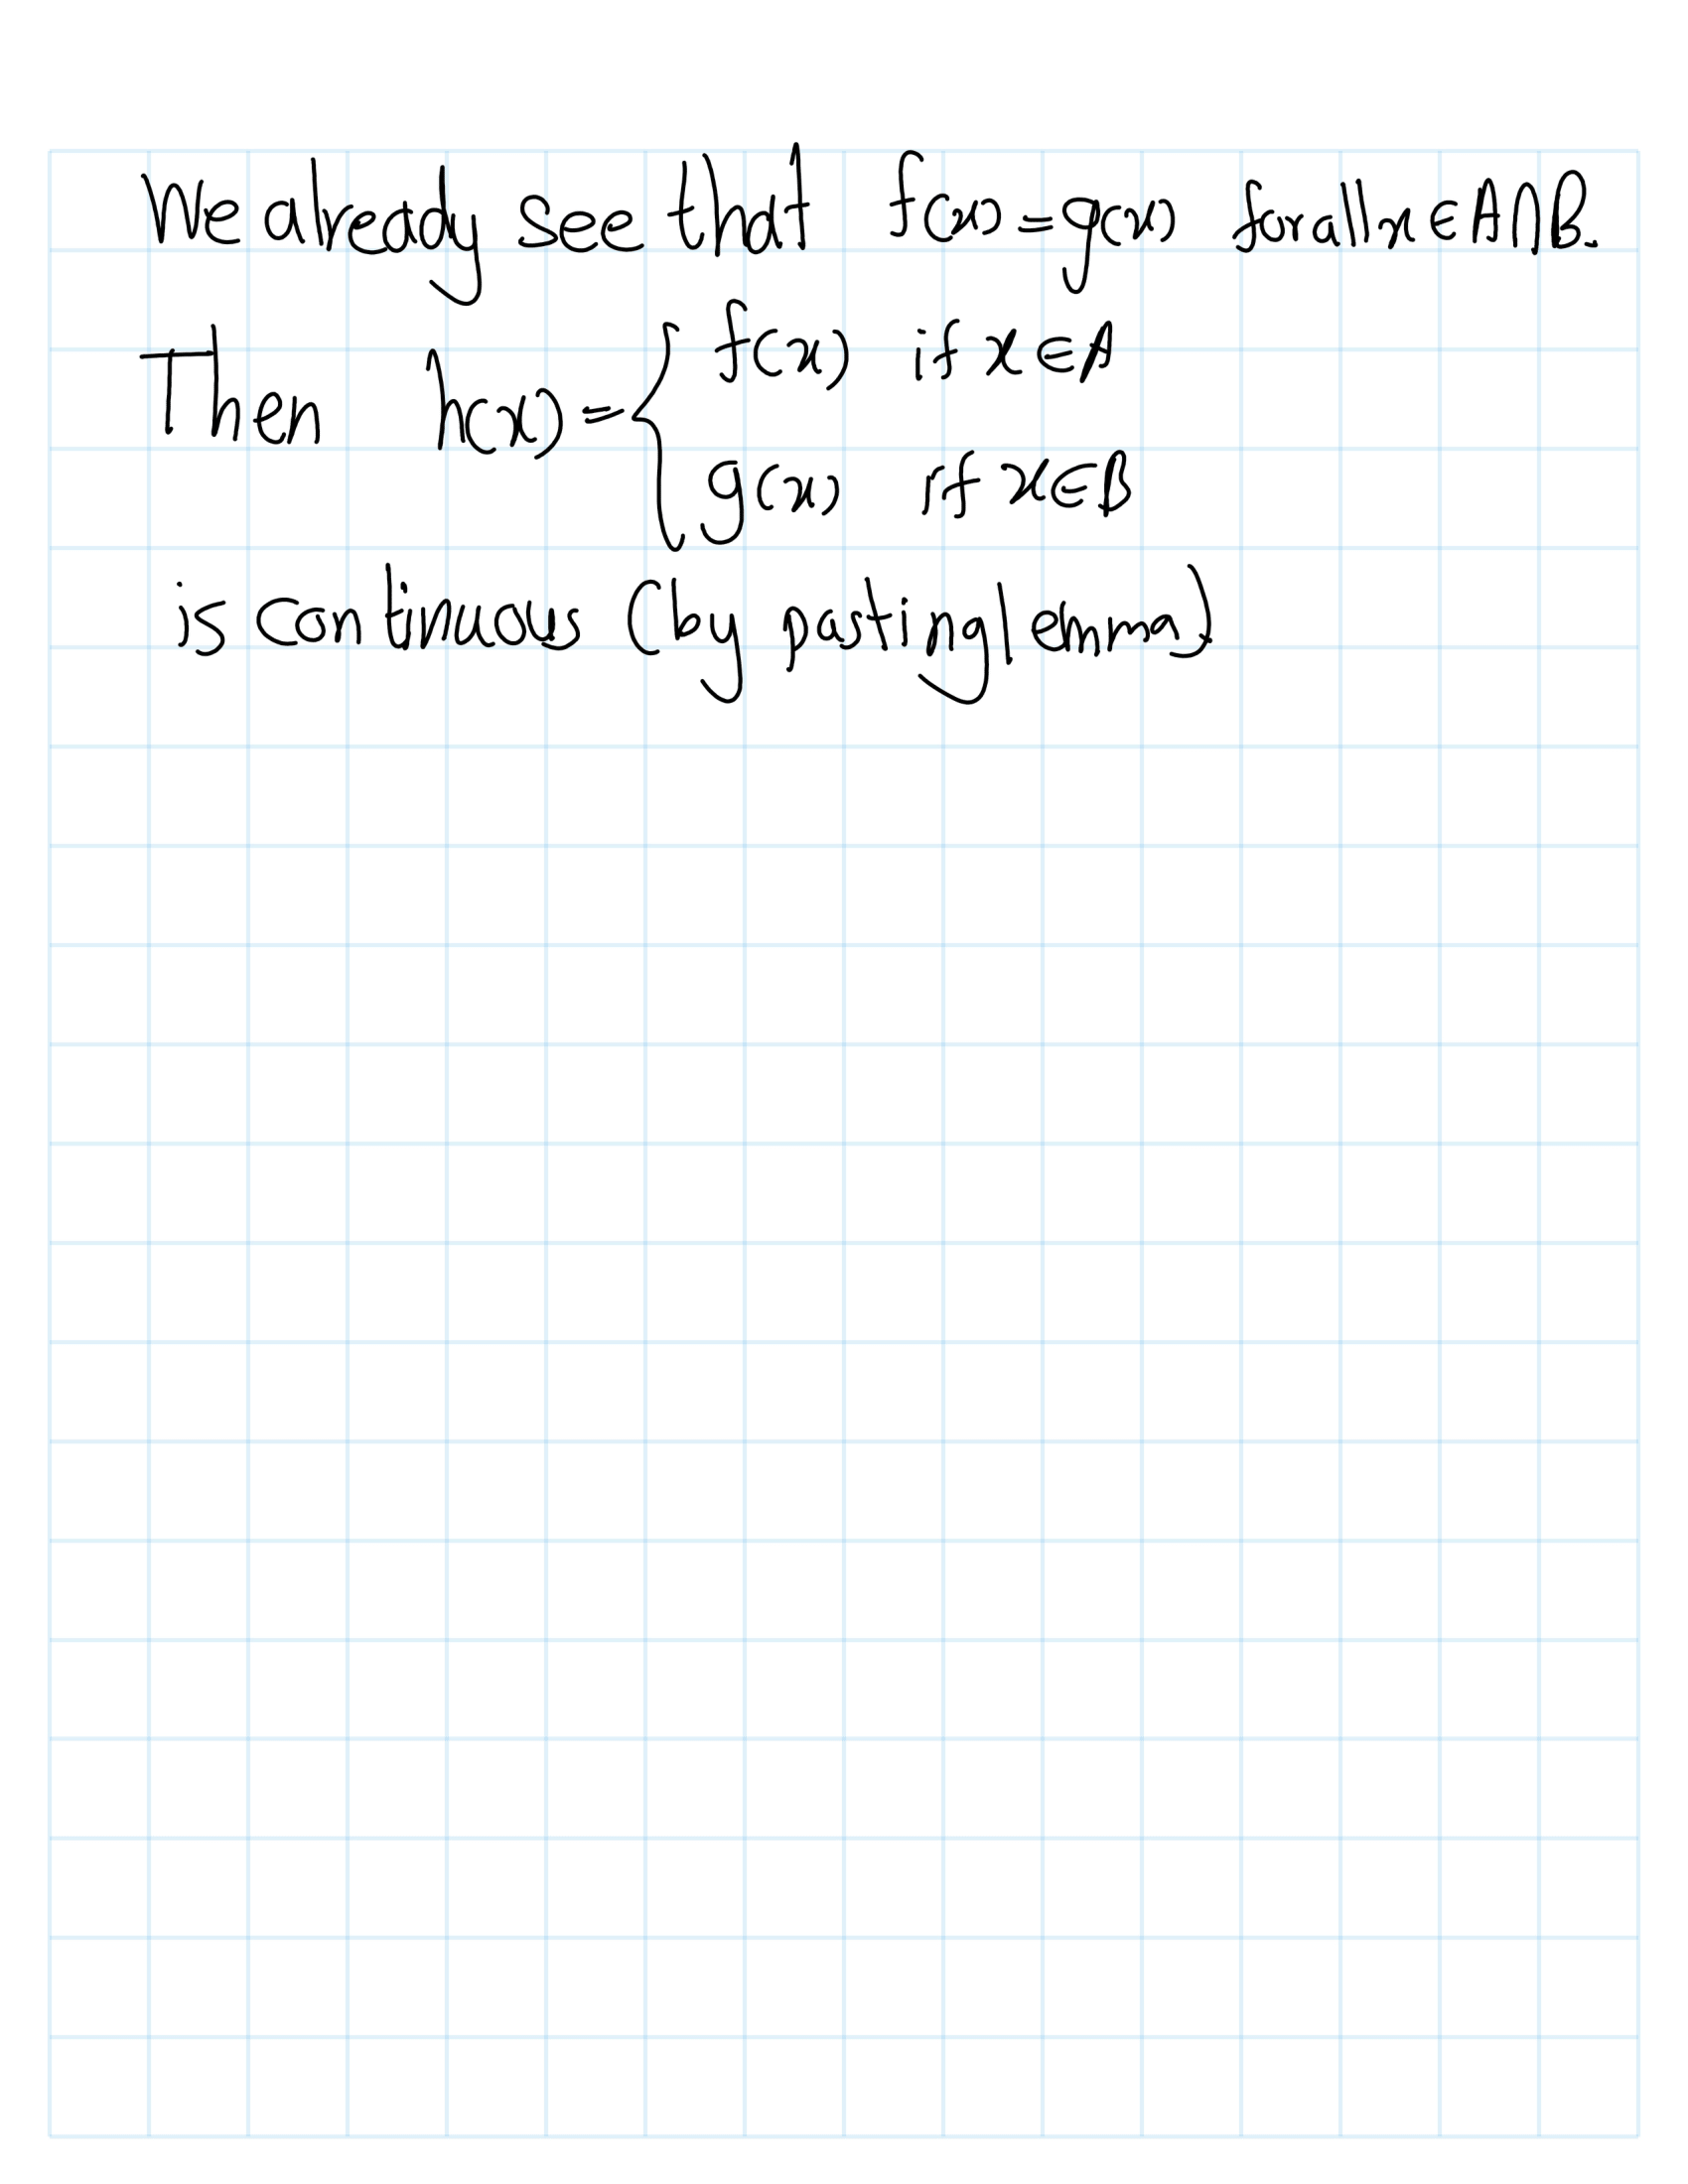 We already see that f(x)=g(x) for all x∈A∩B.
Then h(x)= { f(x) if x∈A
g(x) if x∈B
is continuous (by pasting lemma)